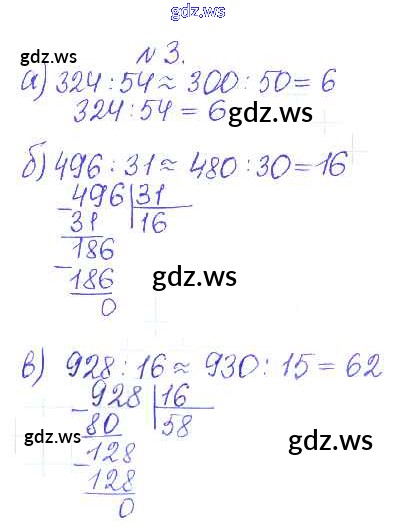 gdz.ws
gdz.ws
№ 3.
а) 324 : 54 ≈ 300 : 50 = 6
324 : 54 = 6
gdz.ws
б) 496 : 31 ≈ 480 : 30 = 16
- 496 | 31
31 | 16
- 186
186
gdz.ws
0
в) 928 : 16 ≈ 930 : 15 = 62
- 928 | 16
80 | 58
gdz.ws
gdz.ws
- 128
128
0